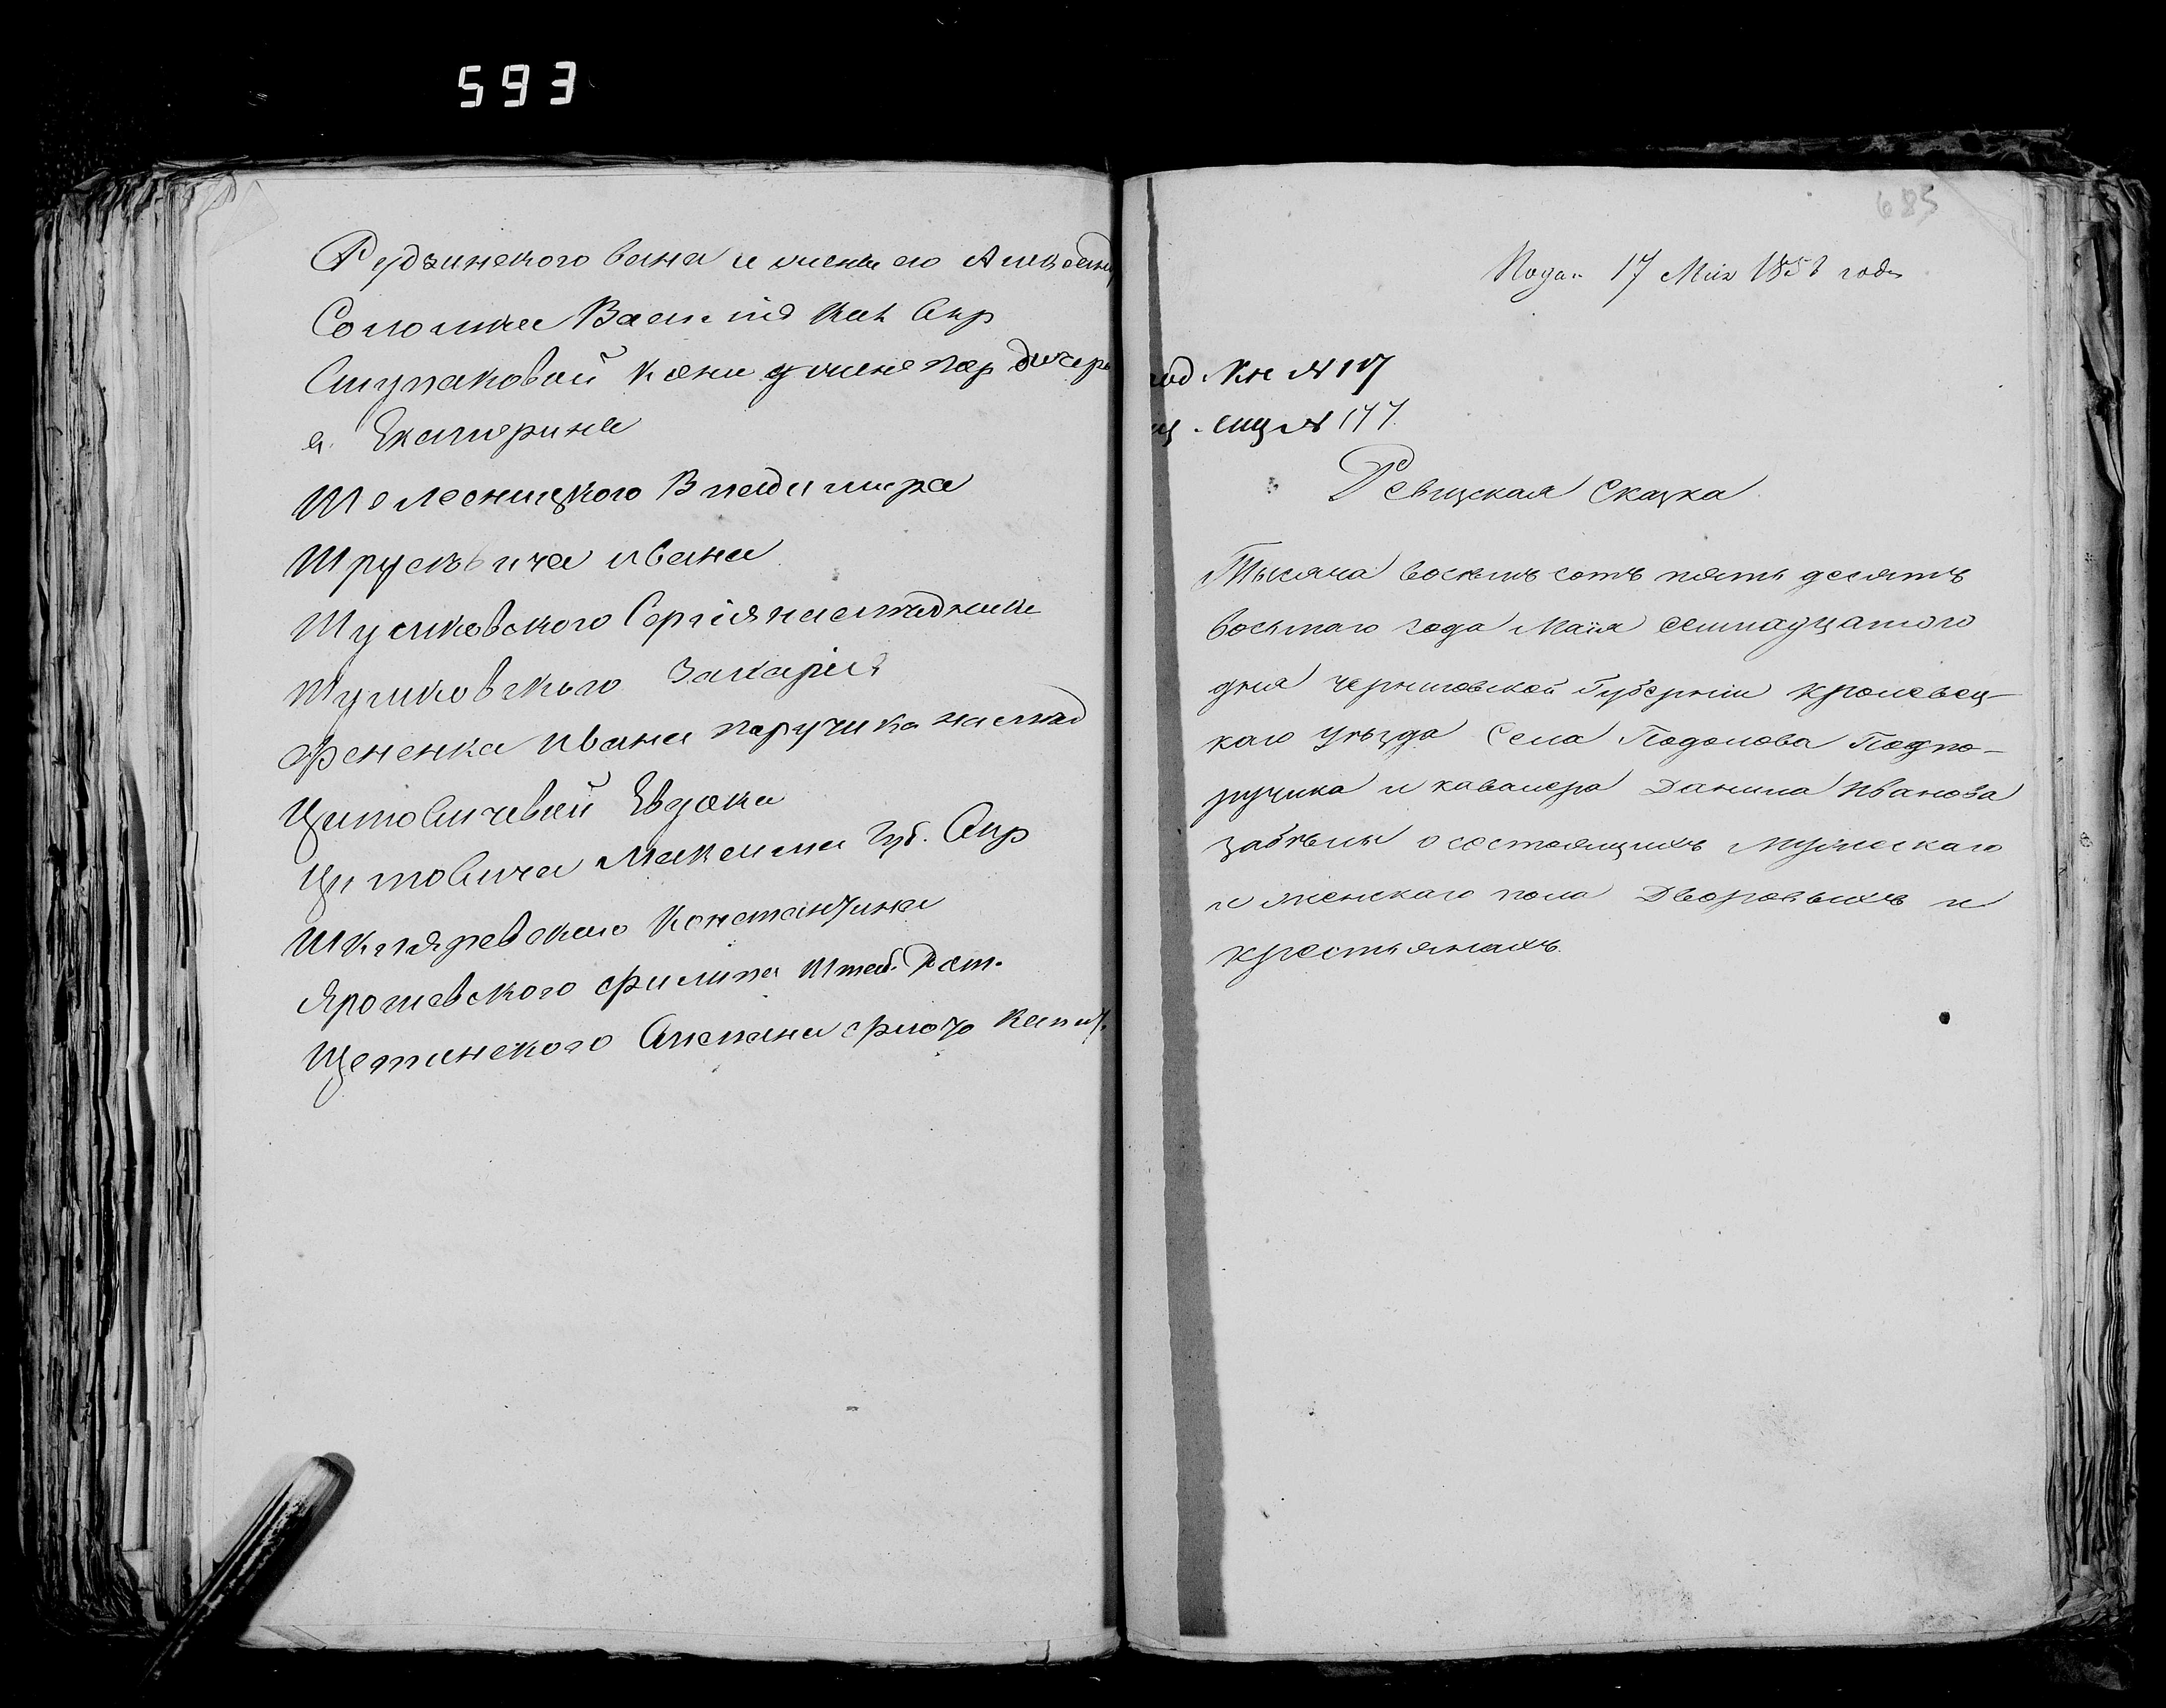 593
Рудзинского вана и жены его Александ
Солошки Василія Кол Секр
Ступаковой Ксени поруч дочери
а. Екатерина
Шелеоницкого Владимира
Трусевича ивана
Тушковского Сергія наследники
Тушковского Захарія
Фененка ивана поручика наслед
Цитовичевой Евдоки
Цитовича Максима Губ. Секр
Шкляревского Константина
Ярошевского филипа Штаб. Рот.
Щетинского Степана флота Капит.
685
Подан 17 Мая 1858 года
Кн № 117
№ 177.
Ревизская Сказка
Тысяча восемь сотъ пять десятъ
восьмаго года Маія семнадцатого
дня Черниговской Губерніи Кролевец-
каго Уѣзда Села Подолова Подпо-
ручика и кавалера Данила Иванова
Забѣлы о состоящихъ мужескаго
и женскаго пола Дворовыхъ и
крестьянахъ.